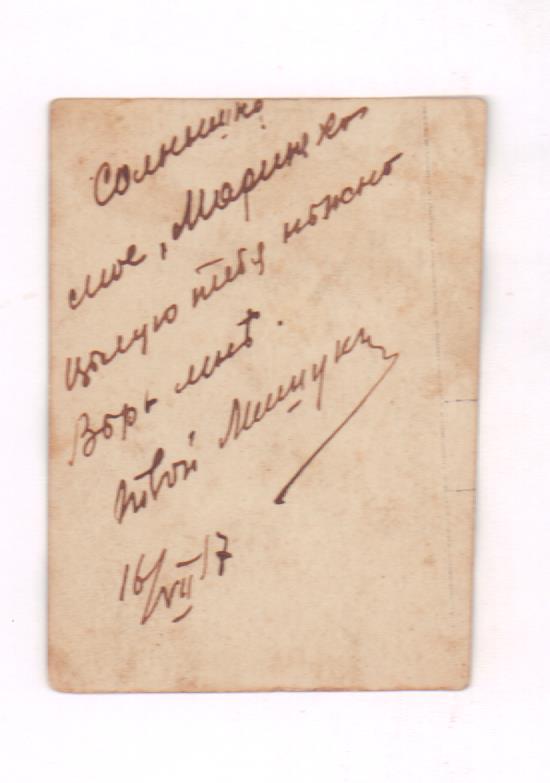 Солнышко
мое, Маринка
цѣлую тебя нѣжно
Вѣрь мнѣ.
твой Мишук
16/VII 17